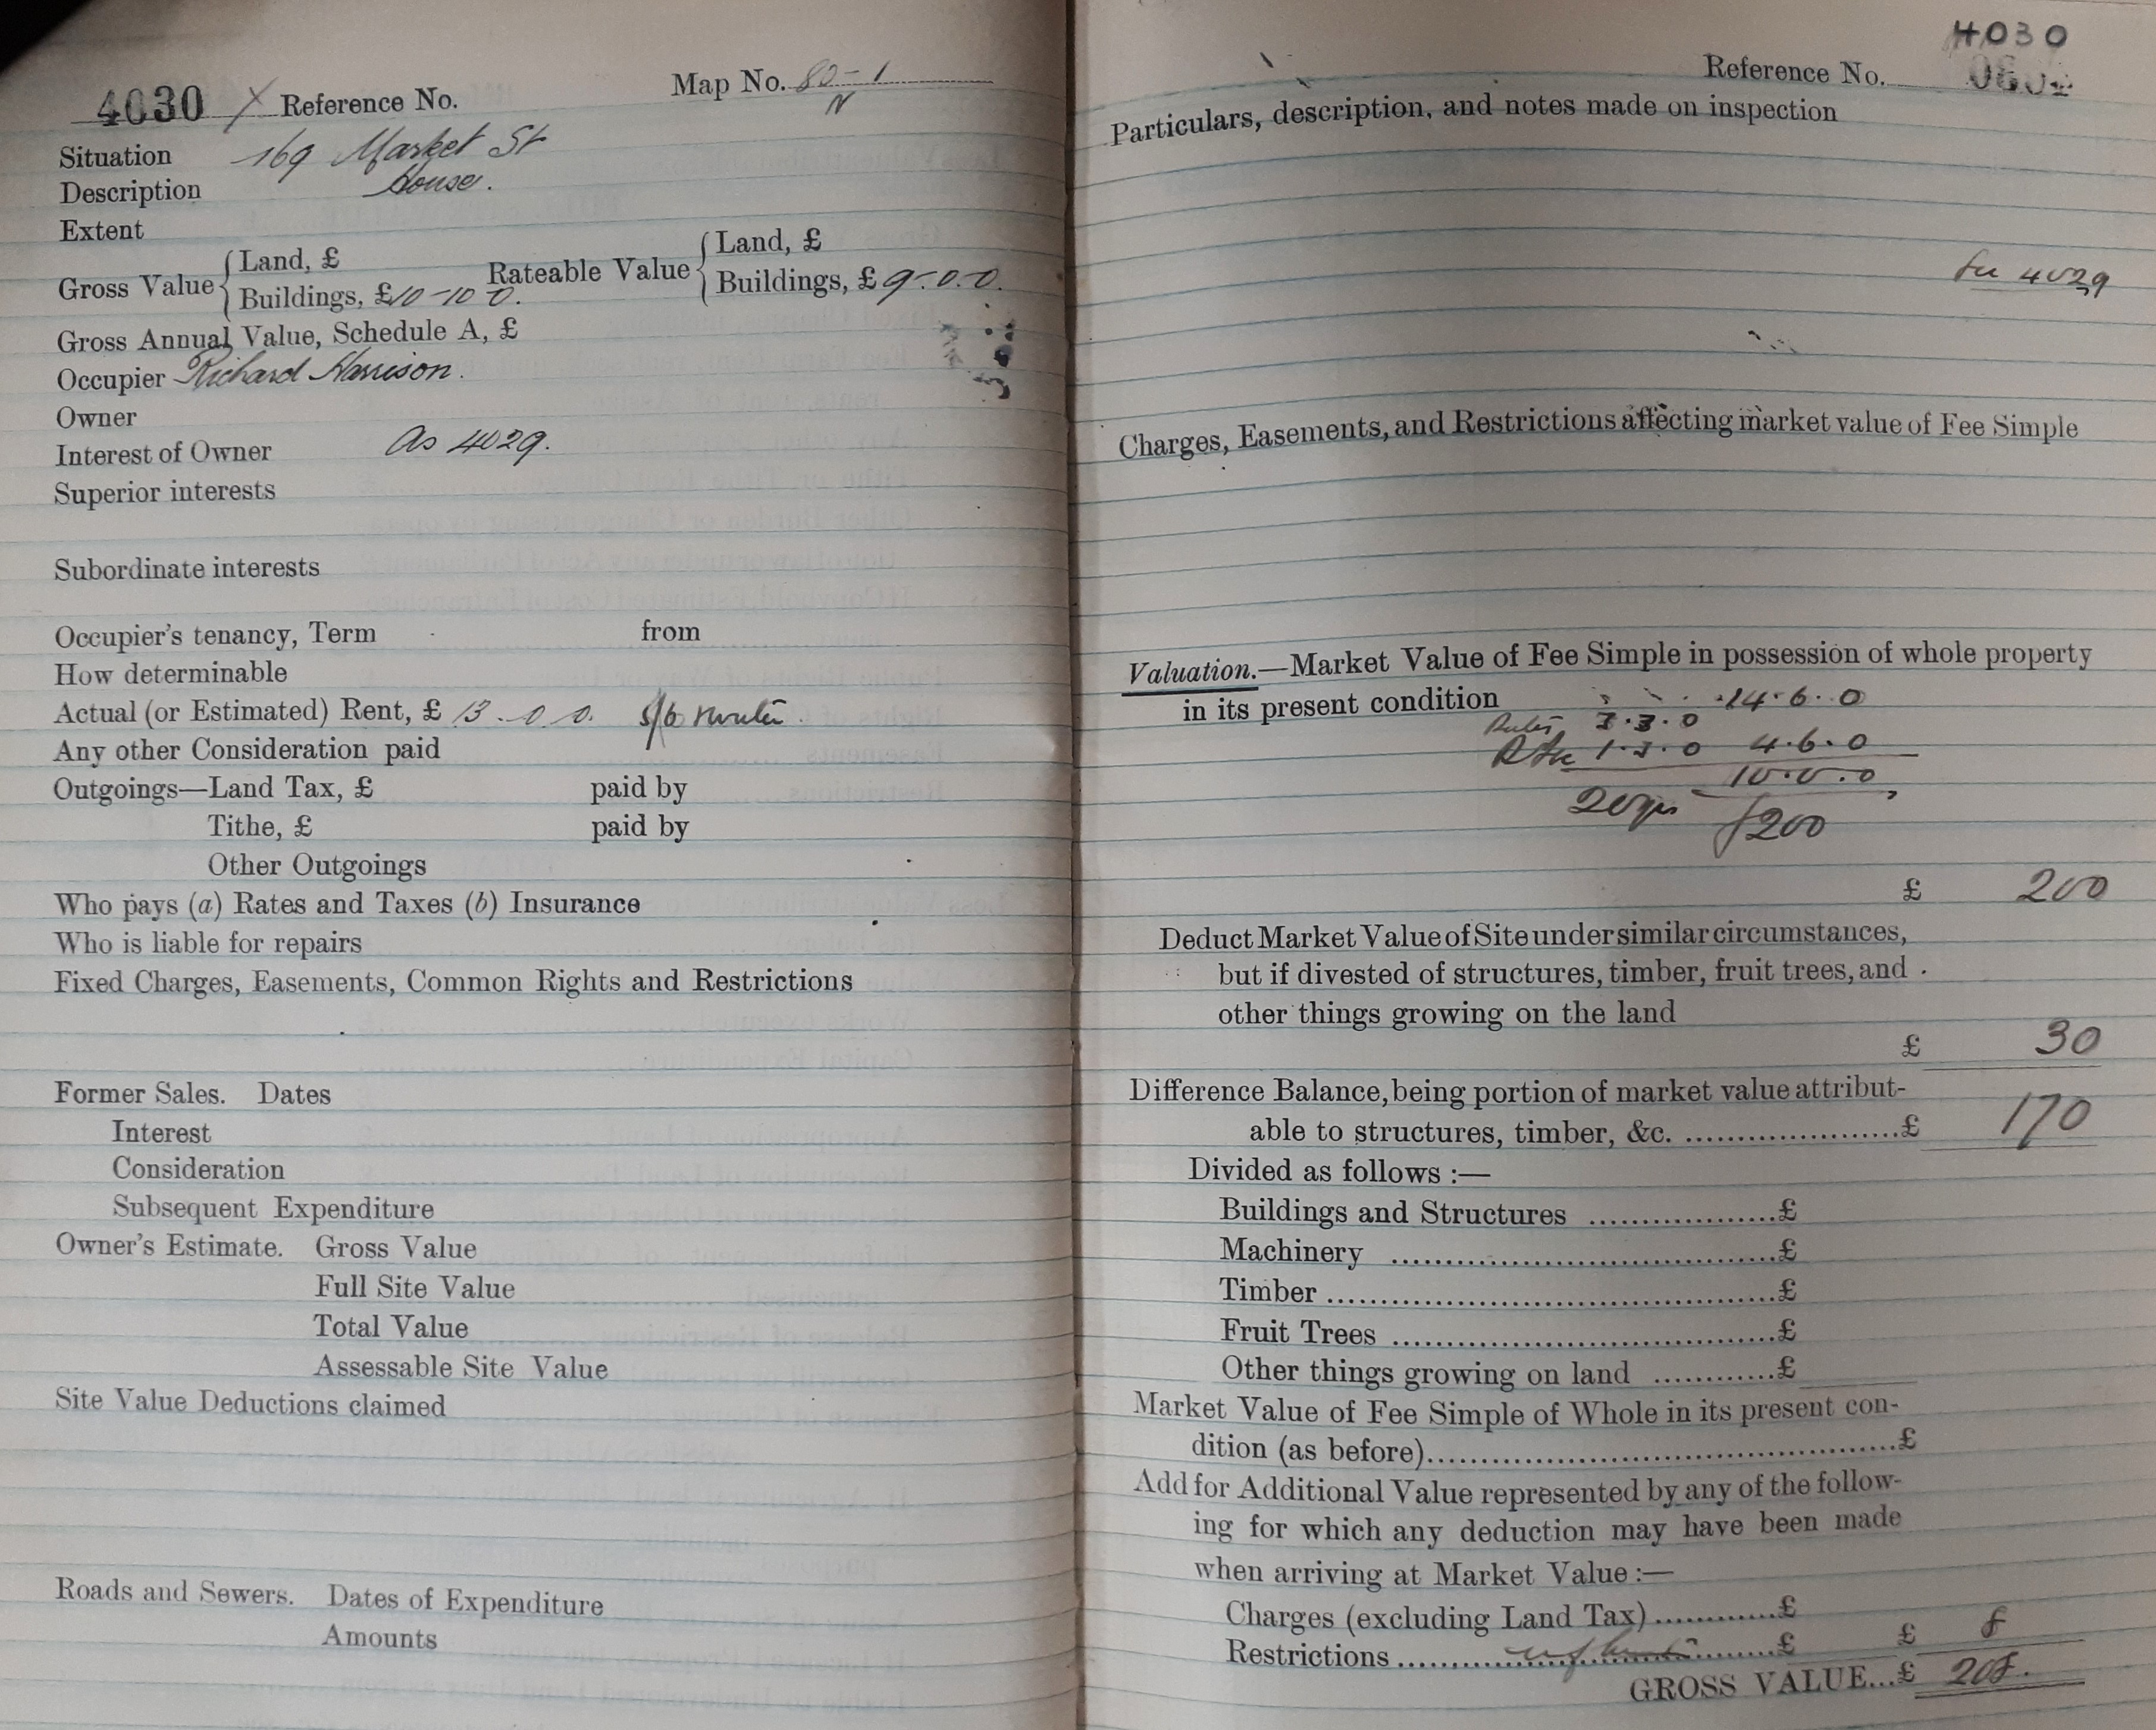 4030 Reference No. Map No. 80-1
N
Situation 169 Market St
Description House.
Extent
Gross Value { Land, £
Buildings, £10-10-0. Rateable Value { Land, £
Buildings, £ 9-0-0.
Gross Annual Value, Schedule A, £
Occupier Richard Harrison.
Owner
Interest of Owner As 4029.
Superior interests
Subordinate interests
Occupier's tenancy, Term from
How determinable
Actual (or Estimated) Rent, £ 13-0-0. 5/6
Any other Consideration paid
Outgoings—Land Tax, £ paid by
Tithe, £ paid by
Other Outgoings
Who pays (a) Rates and Taxes (b) Insurance
Who is liable for repairs
Fixed Charges, Easements, Common Rights and Restrictions
Former Sales. Dates
Interest
Consideration
Subsequent Expenditure
Owner's Estimate. Gross Value
Full Site Value
Total Value
Assessable Site Value
Site Value Deductions claimed
Roads and Sewers. Dates of Expenditure
Amounts
4030
Reference No.
Particulars, description, and notes made on inspection
See 4029
Charges, Easements, and Restrictions affecting market value of Fee Simple
Valuation.—Market Value of Fee Simple in possession of whole property
in its present condition 14.6.0
Rates 3.3.0
1.3.0 4.6.0
10.0.0
20 yrs £200
£ 200
Deduct Market Value of Site under similar circumstances,
but if divested of structures, timber, fruit trees, and
other things growing on the land
£ 30
Difference Balance, being portion of market value attribut-
able to structures, timber, &c. .....................£ 170
Divided as follows :—
Buildings and Structures ..................£
Machinery .....................................£
Timber ...........................................£
Fruit Trees .....................................£
Other things growing on land ............£
Market Value of Fee Simple of Whole in its present con-
dition (as before)...............................................£
Add for Additional Value represented by any of the follow-
ing for which any deduction may have been made
when arriving at Market Value :—
Charges (excluding Land Tax)............£
Restrictions....................................£ £ 8
GROSS VALUE...£ 208.